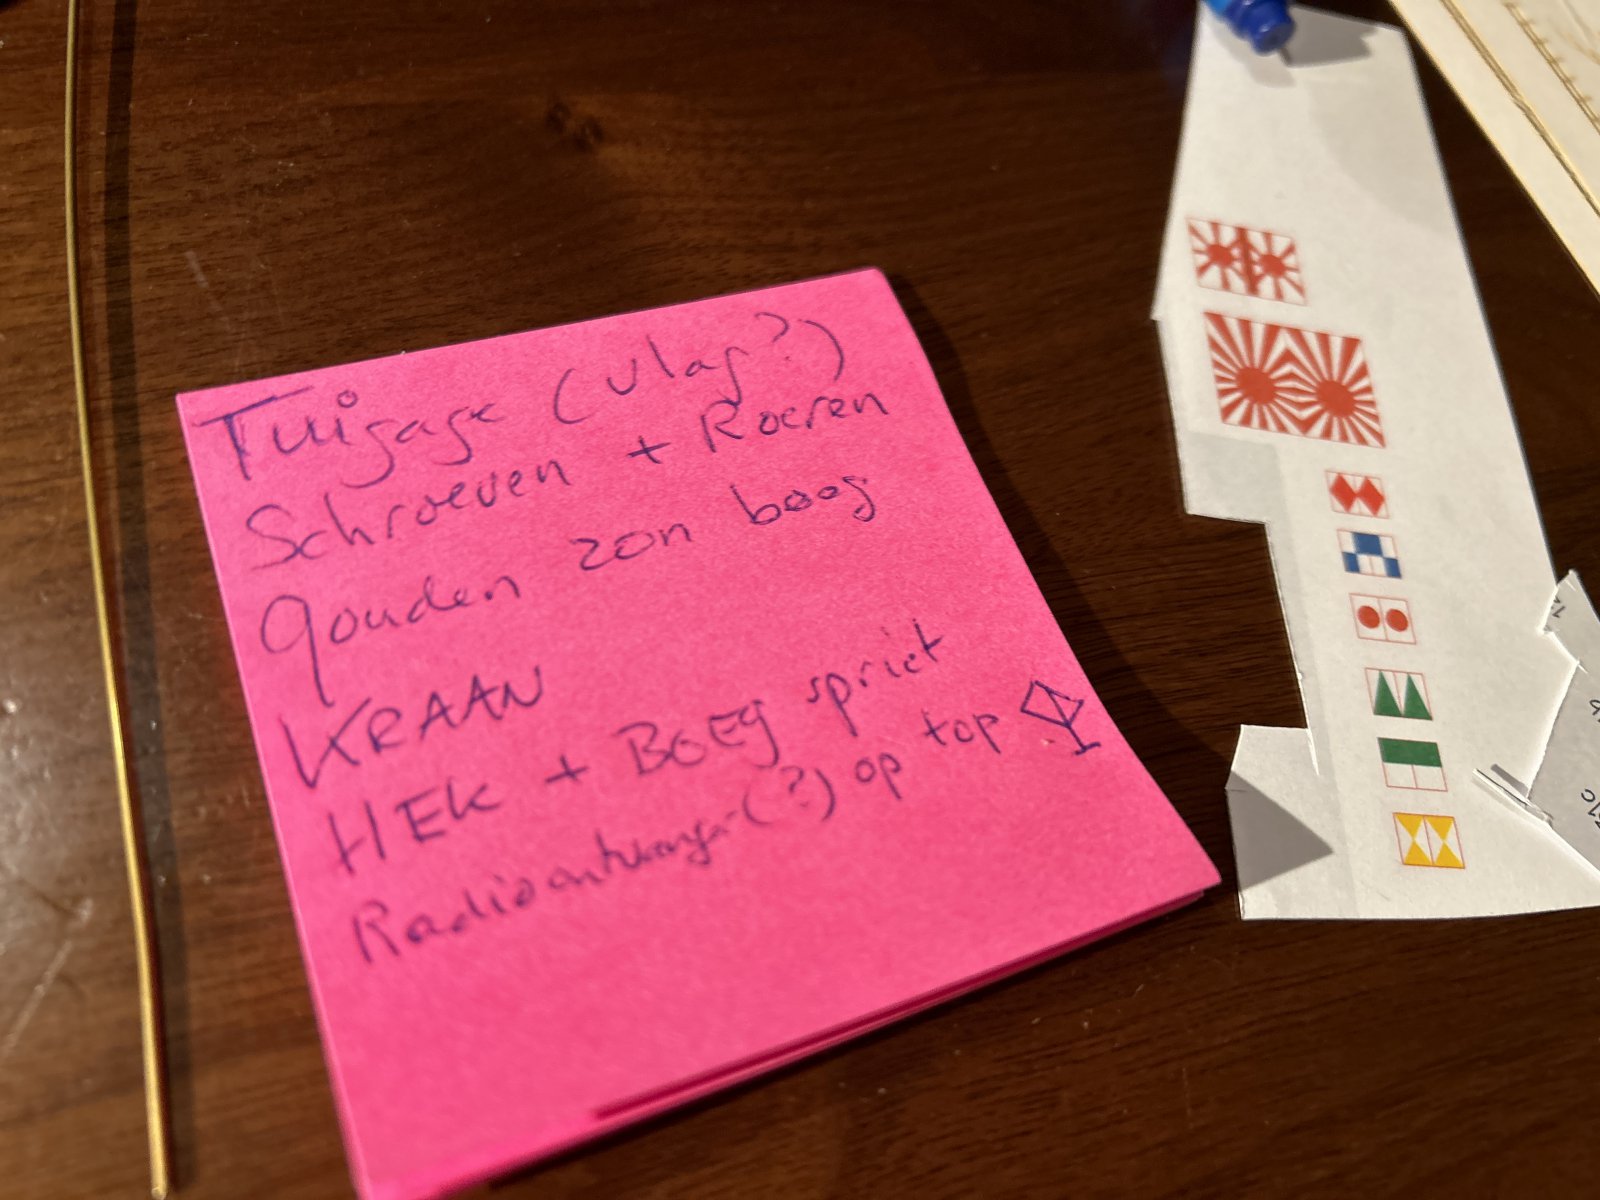 Tuigage (vlag?)
Schroeven + Roeren
gouden zon boog
KRAAN
HEK + BOEg spriet
Radioontvanger(?) op top